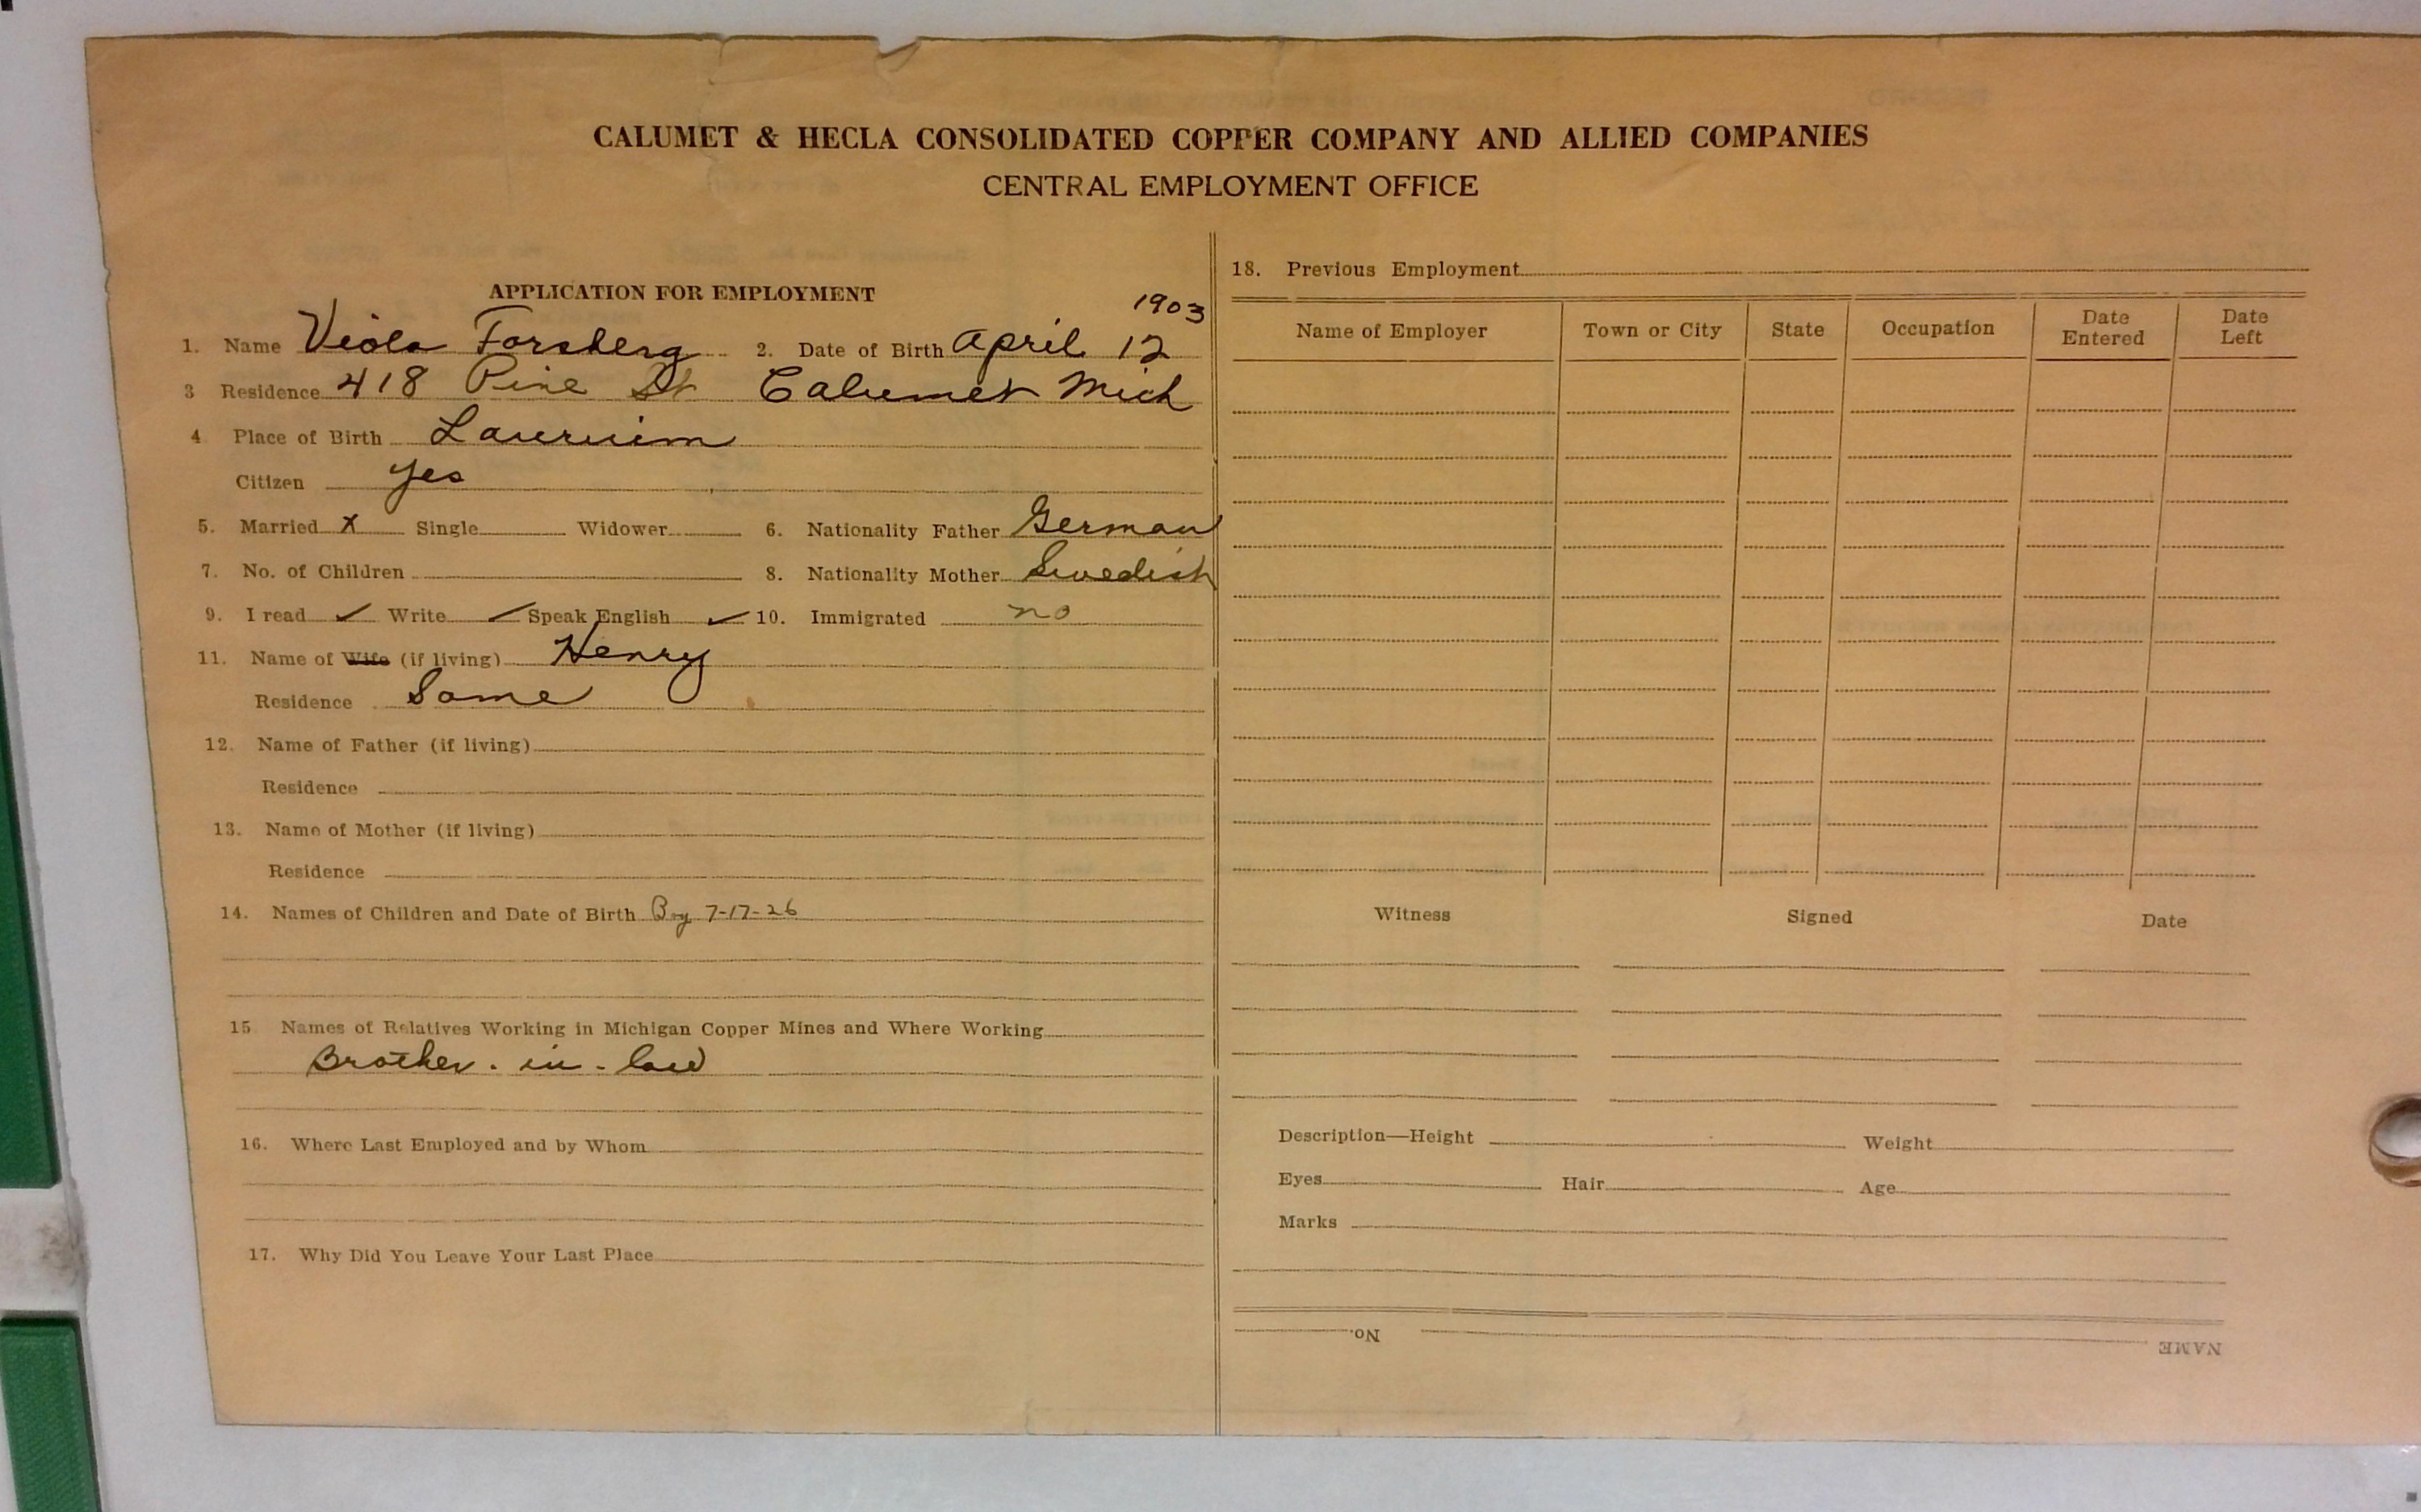 CALUMET & HECLA CONSOLIDATED COPPER COMPANY AND ALLIED COMPANIES
CENTRAL EMPLOYMENT OFFICE
APPLICATION FOR EMPLOYMENT
1903
1. Name Viola Forsberg 2. Date of Birth April 12
3 Residence 418 Pine St Calumet Mich
4 Place of Birth Laurium
Citizen yes
5. Married x Single Widower 6. Nationality Father German
7. No. of Children 8. Nationality Mother Swedish
9. I read ✓ Write ✓ Speak English ✓ 10. Immigrated no
11. Name of Wife (if living) Henry
Residence Same
12. Name of Father (if living)
Residence
13. Name of Mother (if living)
Residence
14. Names of Children and Date of Birth Boy 7-17-26
15 Names of Relatives Working in Michigan Copper Mines and Where Working
Brother-in-law
16. Where Last Employed and by Whom
17. Why Did You Leave Your Last Place
18. Previous Employment
Name of Employer Town or City State Occupation Date Entered Date Left
Witness Signed Date
Description—Height Weight
Eyes Hair Age
Marks
NAME No.